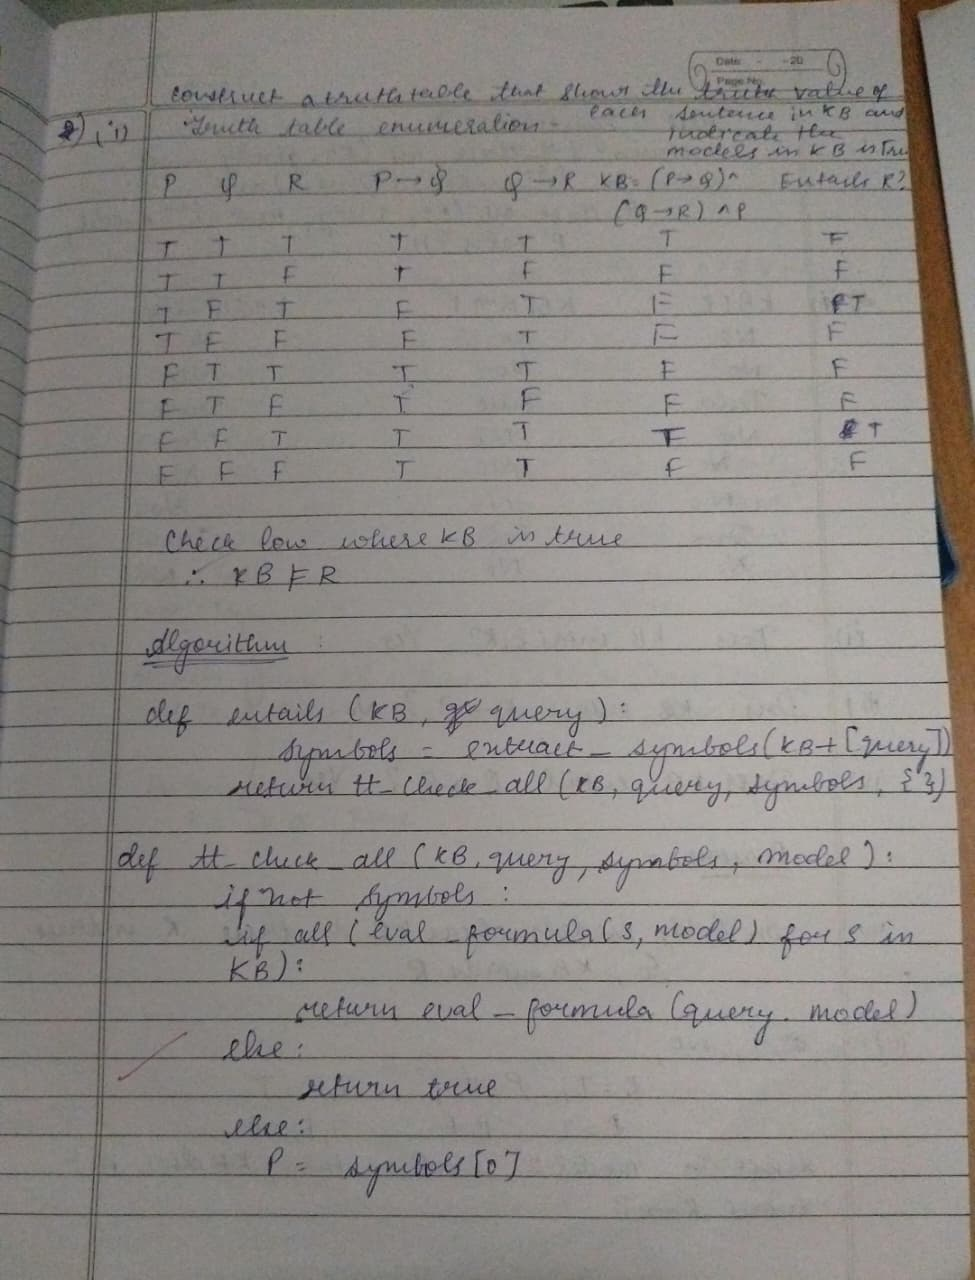 Date - - 20
Page No.
construct a truth table that shows the truth value of
each sentence in KB and
indicate the
models in KB is True
2) (i) Truth table enumeration -
P Q R P→Q Q→R KB = (P→Q)^ Entails R?
(Q→R) ^ P
T T T T T T F
T T F T F F F
T F T F T F T
T F F F T F F
F T T T T F F
F T F T F F F
F F T T T F T
F F F T T F F
Check low where KB is true
∴ KB ⊨ R
Algorithm :
def entails (KB, query):
symbols = extract_symbols(KB+[query])
return tt_check_all(KB, query, symbols, {})
def tt_check_all (KB, query, symbols, model):
if not symbols:
if all (eval_formula(s, model) for s in
KB):
return eval_formula (query. model)
else:
return true
else:
P = symbols[0]